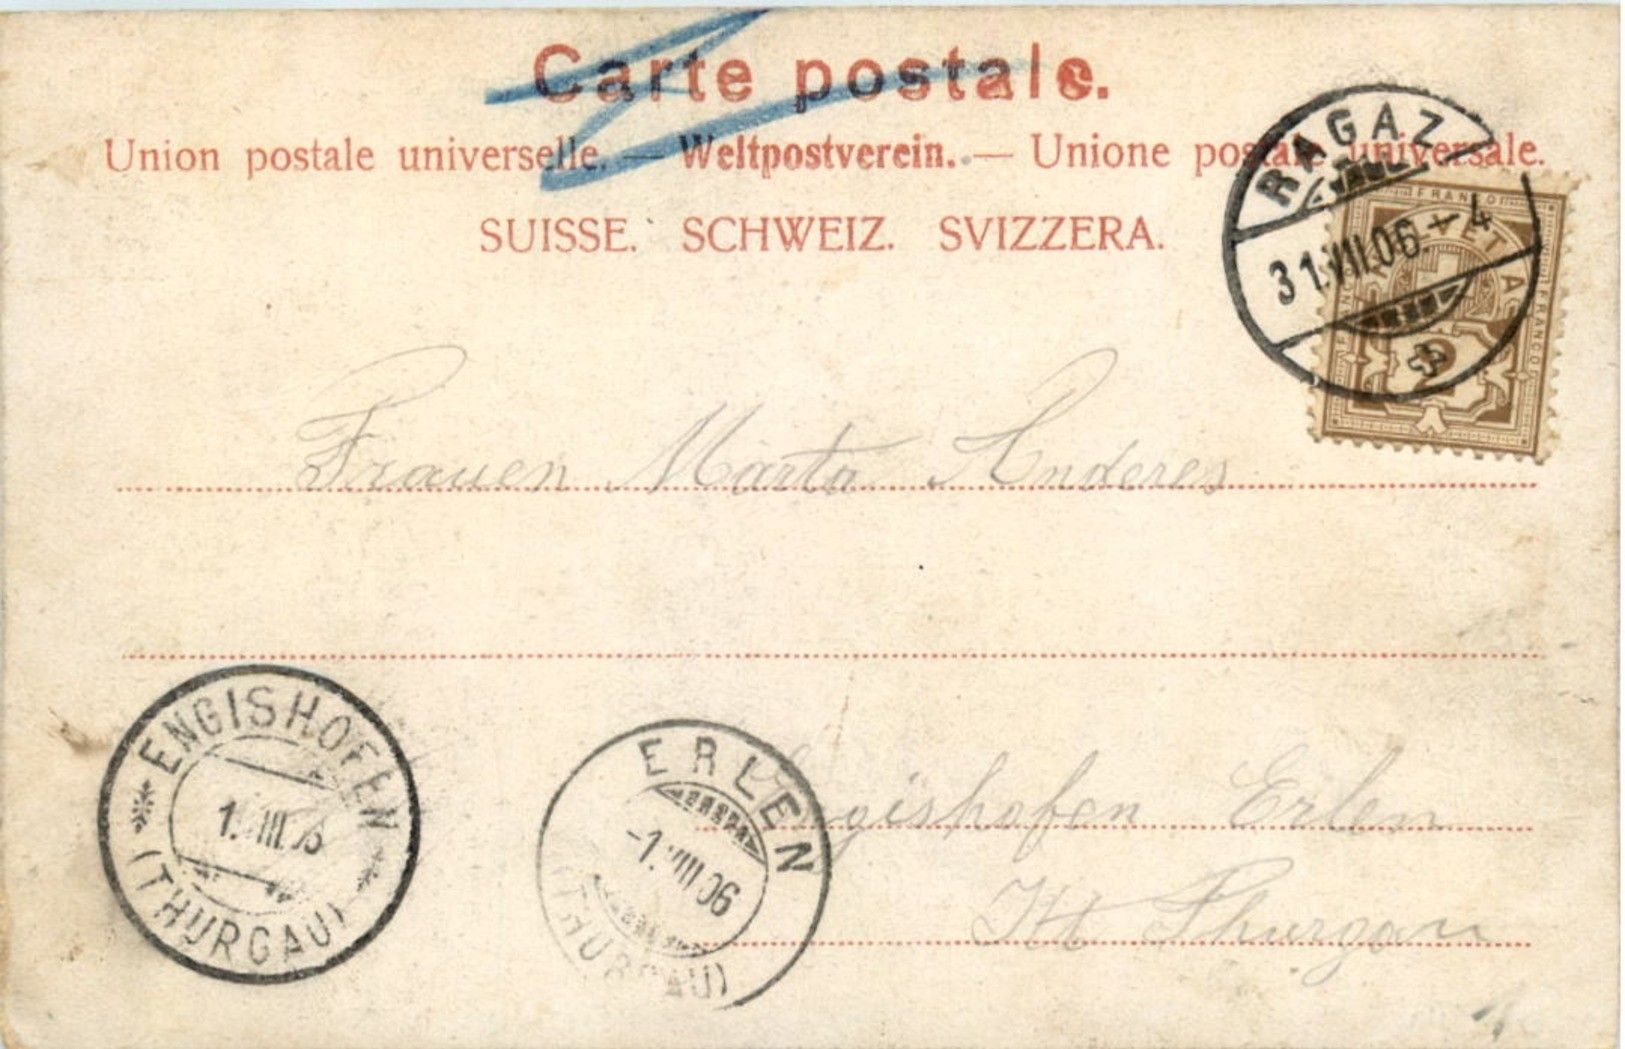 Carte postale.
Union postale universelle. — Weltpostverein. — Unione postale universale.
SUISSE. SCHWEIZ. SVIZZERA.
RAGAZ
31.VII.06.-4
FRANCO
HELVETIA
FRANCO
FRANCO
2
Frauen Marta Anderes
ENGISHOFEN
(THURGAU)
ERLEN
-1.VIII.06
(THURGAU)
Engishofen Erlen
Kt Thurgau